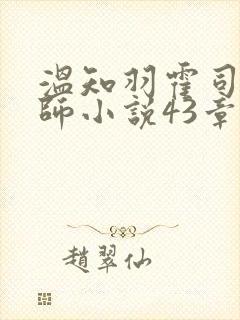 溫知羽霍司
師小說43章
趙翠仙